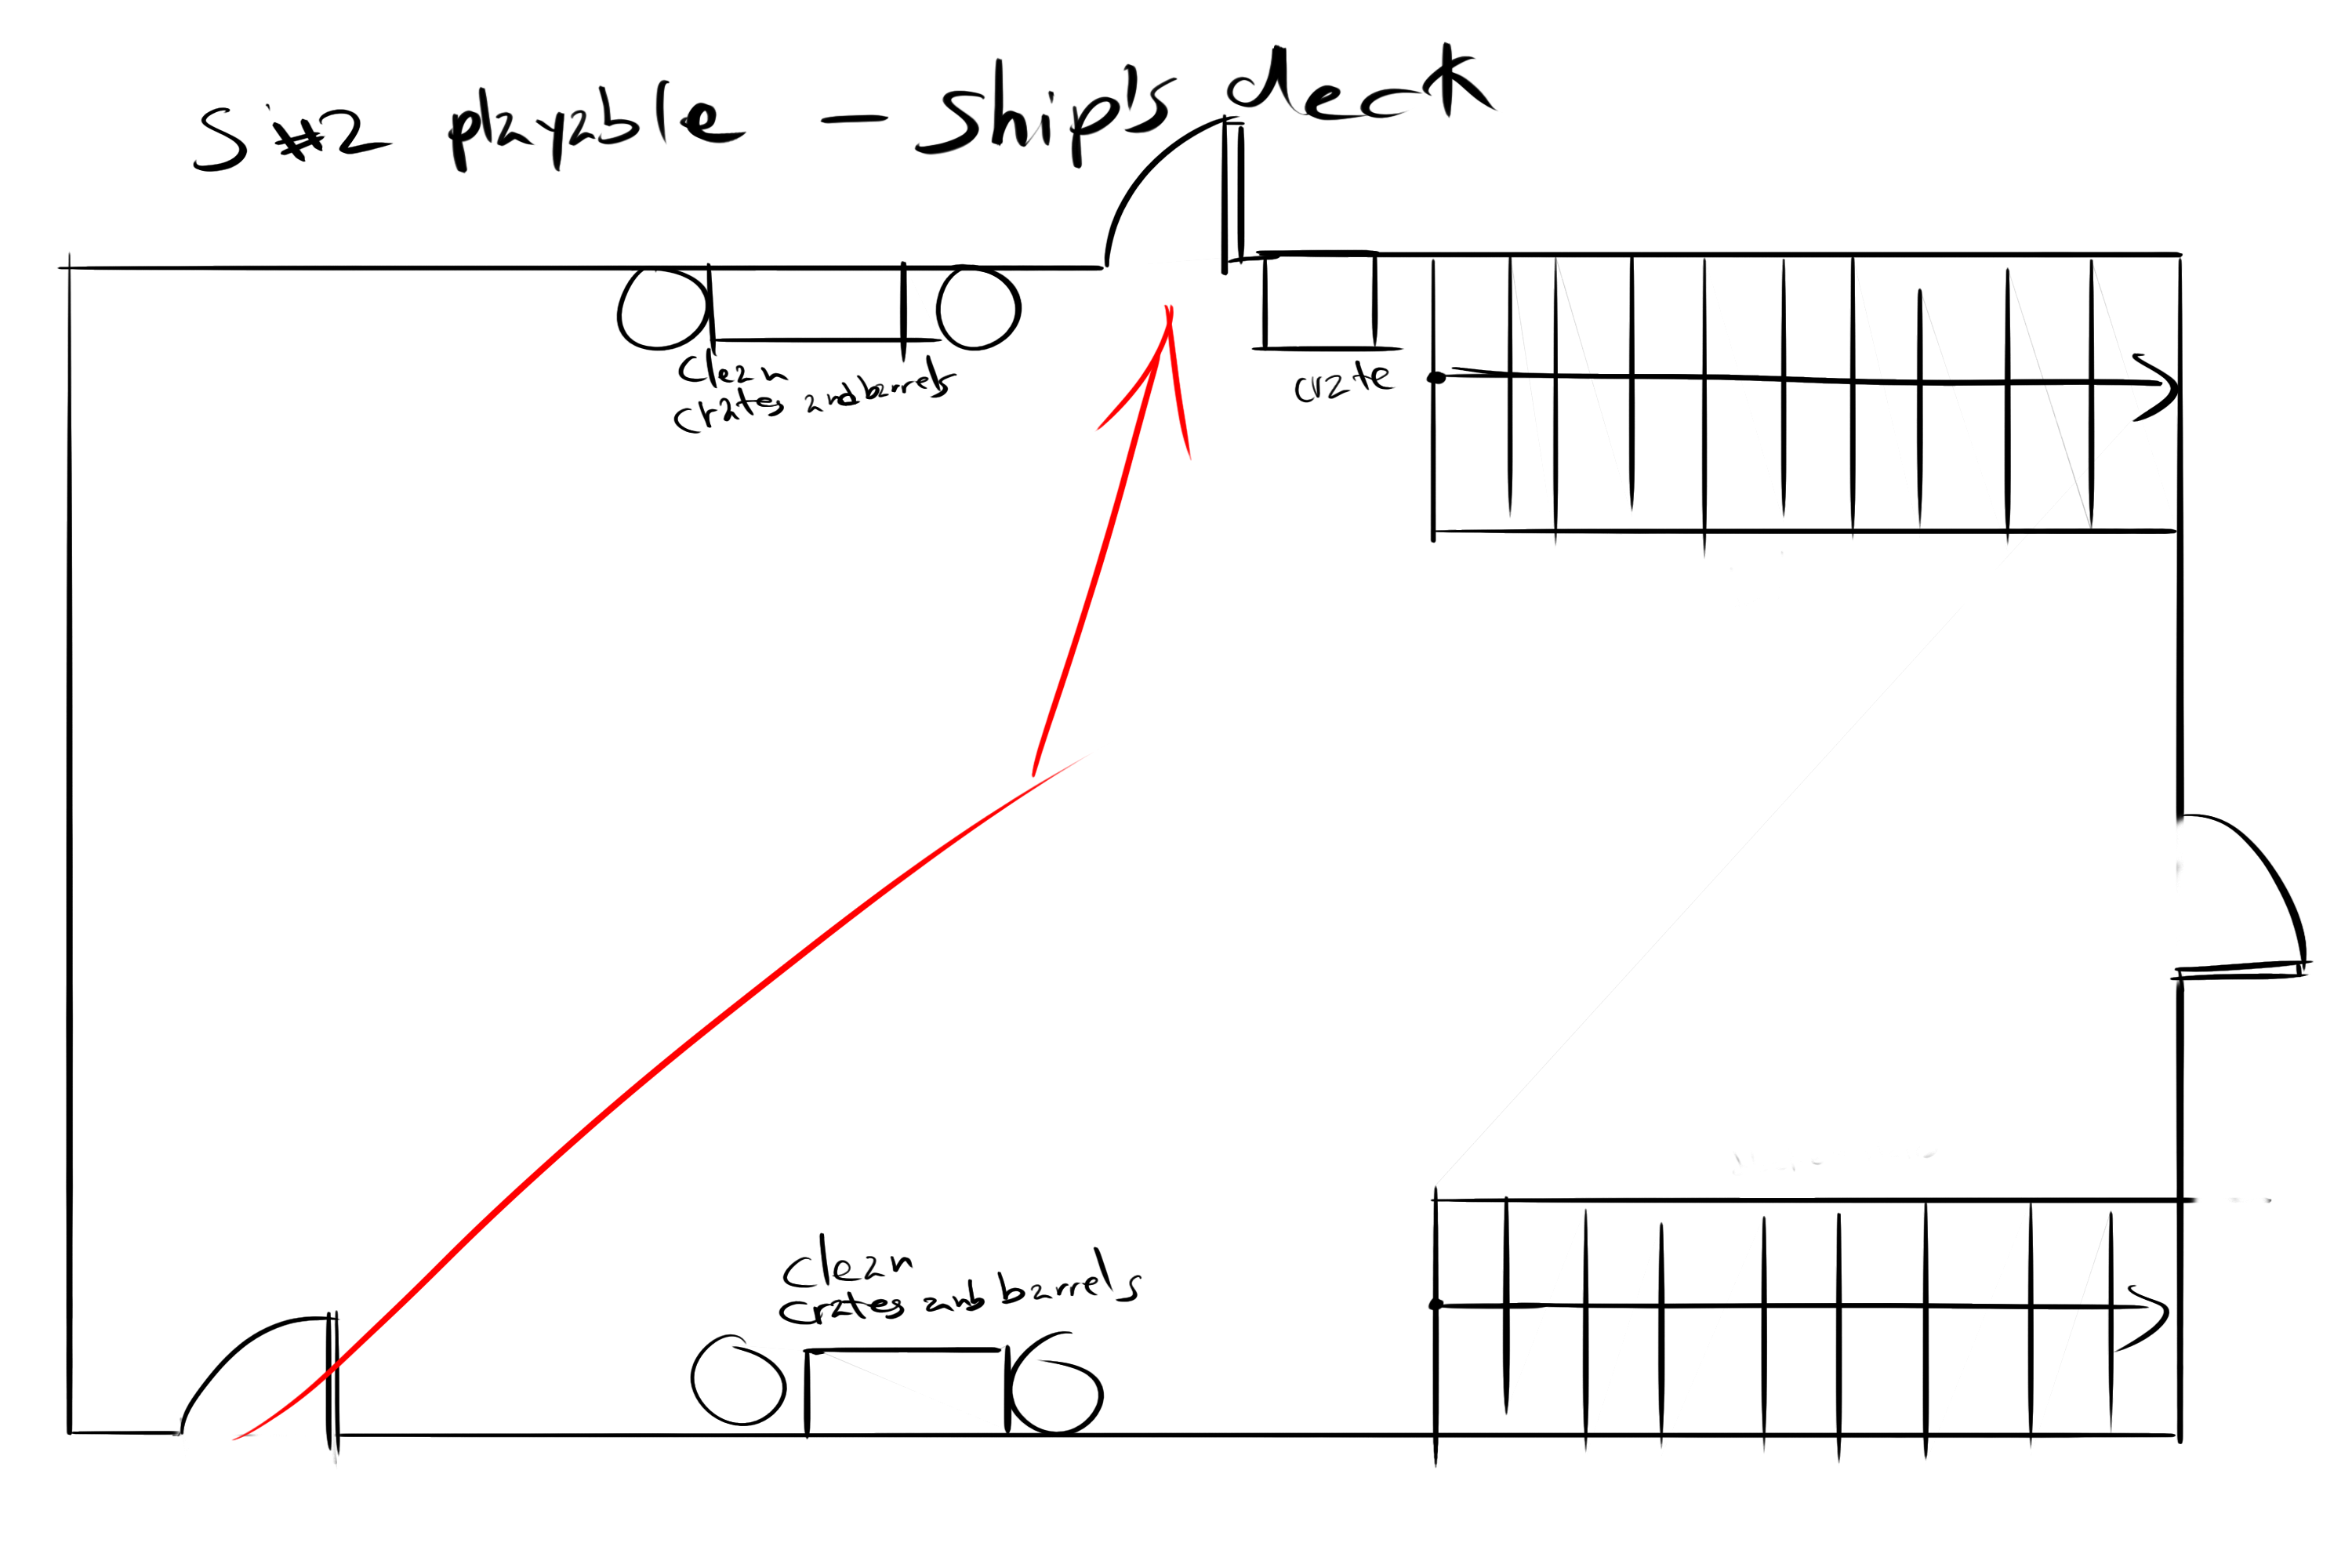 Sima playable - Ship's deck
clean
crates and barrels
crate
clean
crates and barrels